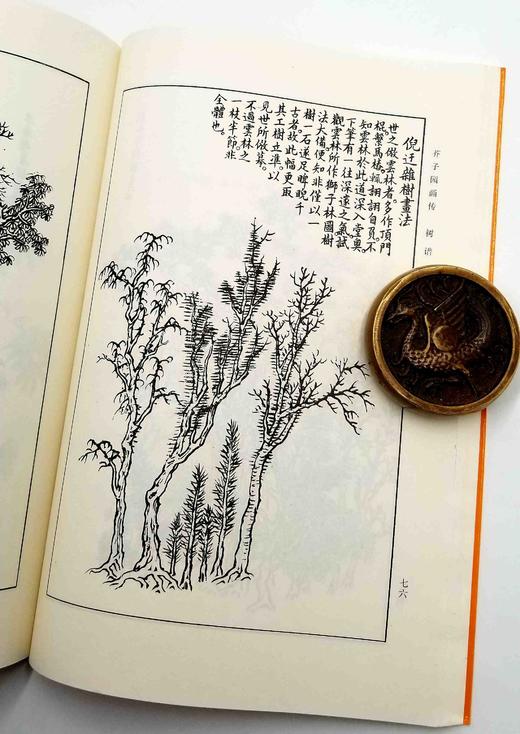 芥子园画传　树谱
倪迂雜樹畫法
世之倣雲林者。多作頂門
棍繫馬樁。輒詡詡自負。不
知雲林於此道深入堂奧。
下筆有一往深遠之氣。試
觀雲林所作獅子林圖樹
法大備。便知非僅以一
樹一石。遂足睥睨千
古者。故此幅更取
其工樹立準。以
見世所倣摹。
不過雲林之
一枝半節。非
全體也。
七六